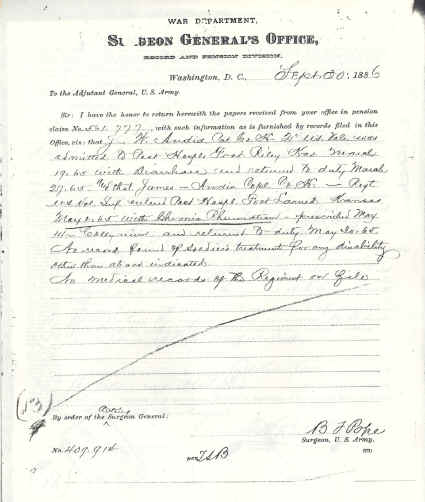 WAR DEPARTMENT,
SURGEON GENERAL'S OFFICE,
RECORD AND PENSION DIVISION,
Washington, D. C., Sept. 30, 1886
To the Adjutant General, U. S. Army.
Sir: I have the honor to return herewith the papers received from your office in pension
claim No. 561.777, with such information as is furnished by records filed in this
Office, viz: that J. W. Co K 2" U.S. Vols. was
admitted to Post Hospl. Fort Riley Kas March
19.65 with and returned to duty March
27.65. that James Co K. Regt
U.S. Vol. Inf. entered Post Hospl Fort Larned Kansas
May 2.65 with Chronic Rheumatism prescribed May
and returned to duty May 20.65
No record found of soldier's treatment for any disability
other than above indicated.
No medical records of the Regiment on file
(13)
By order of the Acting Surgeon General:
B F Pope
Surgeon, U. S. Army.
No. 409.914